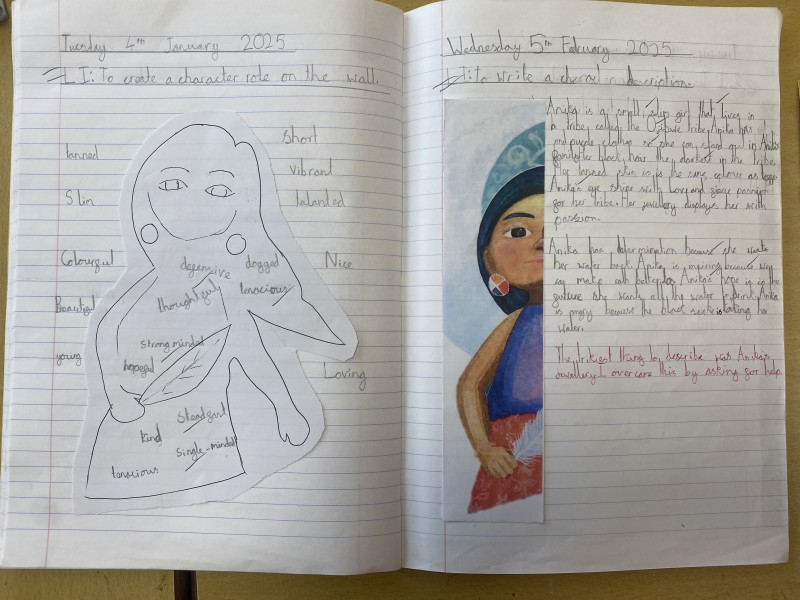 Tuesday 4th January 2025
LI: To create a character role on the wall.
tanned
Slin
Colourful
Beautiful
young
short
vibrant
talanted
Nice
Loving
defensive
dogged
thoughtful
tenacious
strong minded
hopeful
Steadfast
kind
single-minded
tenacious
Wednesday 5th February 2025
LI: To write a description.
Anika is a small, slip girl that lives in
a tribe called the Ojibwe tribe. Anika has
and purple clothing so she can stand out
black hair the darkest in the tribe.
Her tanned skin is the same colour as
Anika's eye shine with love and passion
for her tribe. Her jewellery displays her with
passion.
Anika has determination because she wants
her water back. Anika is inspiring because will
say make earth better. Anika's hope is in the
future she wants all the water to drink. Anika
is angry because the black snake is taking her
water.
The trikest thing to describe was Anika's
jwellery I overcame this by asking for help.